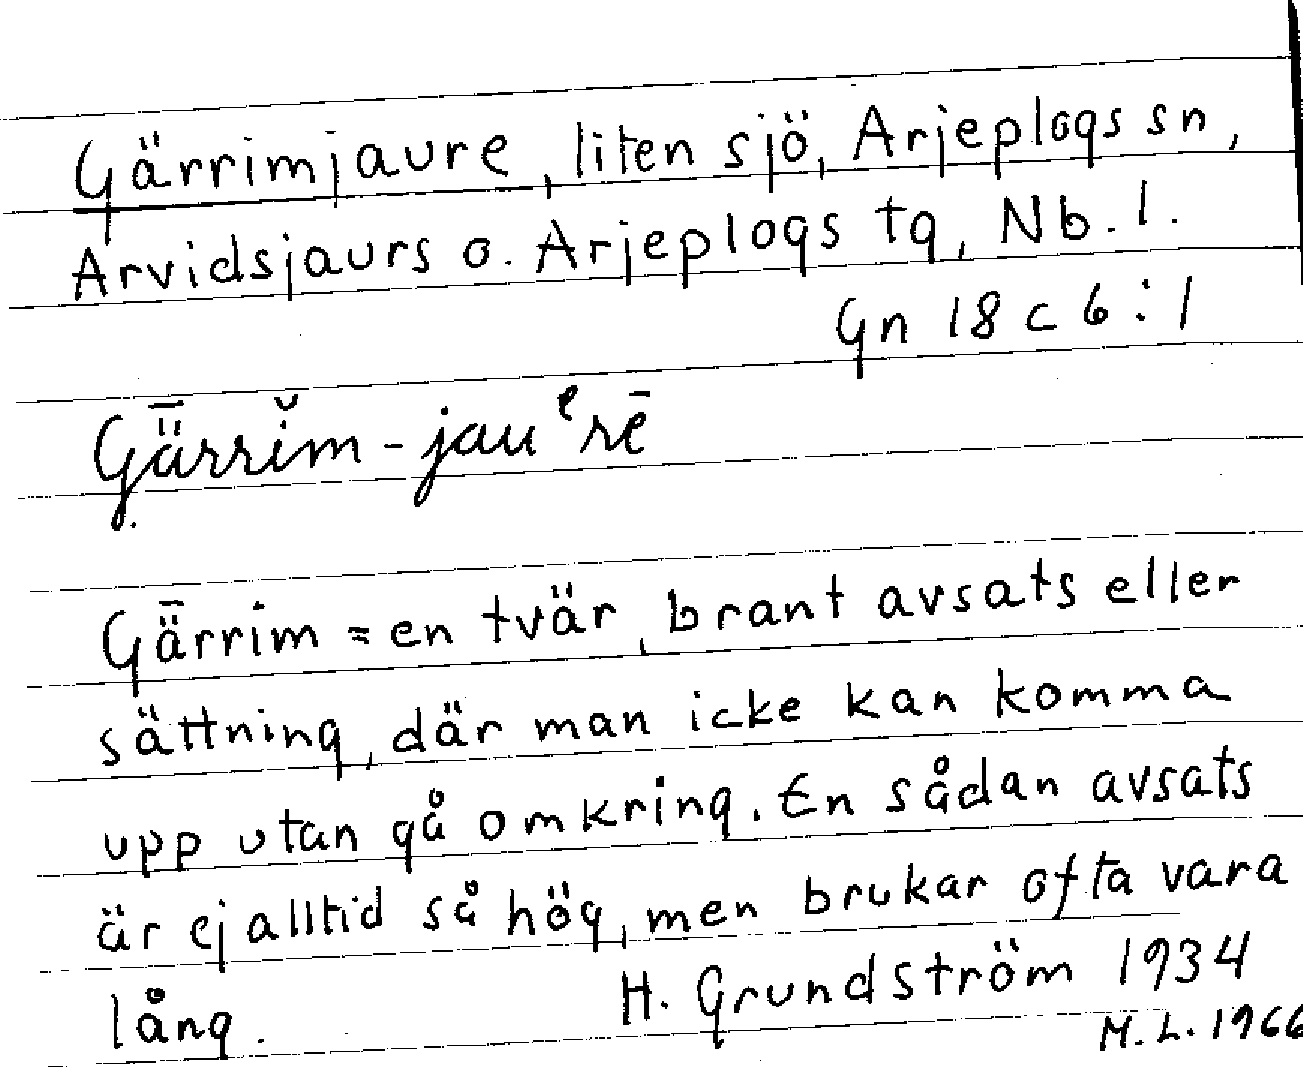 Gärrimjaure, liten sjö, Arjeplogs sn,
Arvidsjaurs o. Arjeplogs tg, Nb. l.
Gn 18 c 6:1
Gǟrrĭm-jauᵉrē
Gǟrrim = en tvär, brant avsats eller
sättning, där man icke kan komma
upp utan gå omkring. En sådan avsats
är ej alltid så hög, men brukar ofta vara
lång.
H. Grundström 1934
M.L. 1966